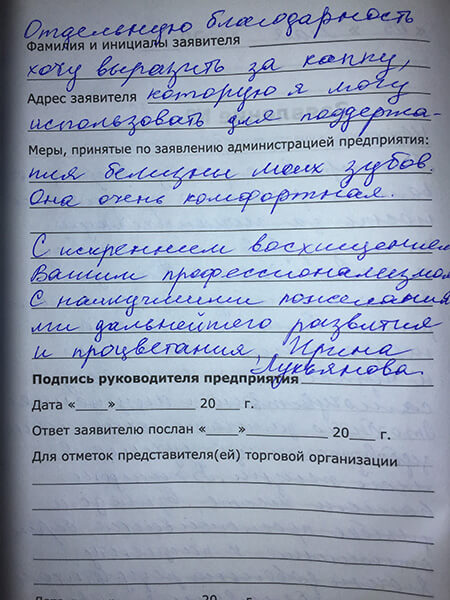 Отдельную благодарность
Фамилия и инициалы заявителя
хочу выразить за каппу,
Адрес заявителя которую я могу
использовать для поддержа-
Меры, принятые по заявлению администрацией предприятия:
ния белизны моих зубов.
Она очень комфортная.
С искренним восхищением
Вашим профессионализмом
С наилучшими пожелания
ми дальнейшего развития
и процветания, Ирина
Лукьянова.
Подпись руководителя предприятия
Дата «___»__________ 20___ г.
Ответ заявителю послан «___»__________ 20___ г.
Для отметок представителя(ей) торговой организации
20 г.